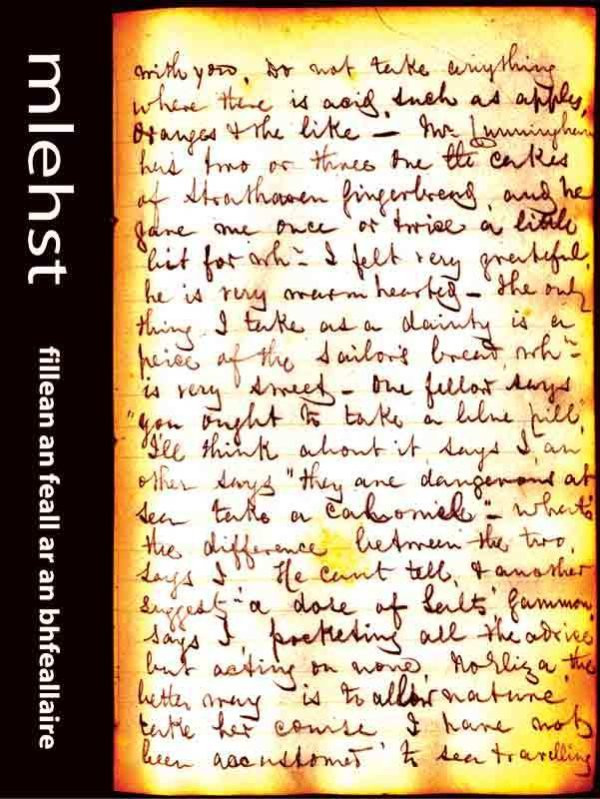 mlehst
fillean an feall ar an bhfeallaire
with you, Do not take anything
where there is acid, such as apples,
Oranges & the like — Mr Cunningham
has two or three one lb cakes
of Strathaven gingerbread, and he
gave me once or twice a little
bit for wh- I felt very grateful,
he is very warm hearted — the only
thing I take as a dainty is a
peice of the Sailors bread, wh-
is very sweet — One fellow says
"you ought to take a blue pill"
I'll think about it says I, an
other says "they are dangerous at
sea take a calomel" — what's
the difference between the two,
says I. He cant tell, & another
suggests a dose of Salts, Gammon
says I, pocketing all the advice
but acting on none, No Eliza the
better way is to allow nature
take her course I have not
been accustomed to sea travelling